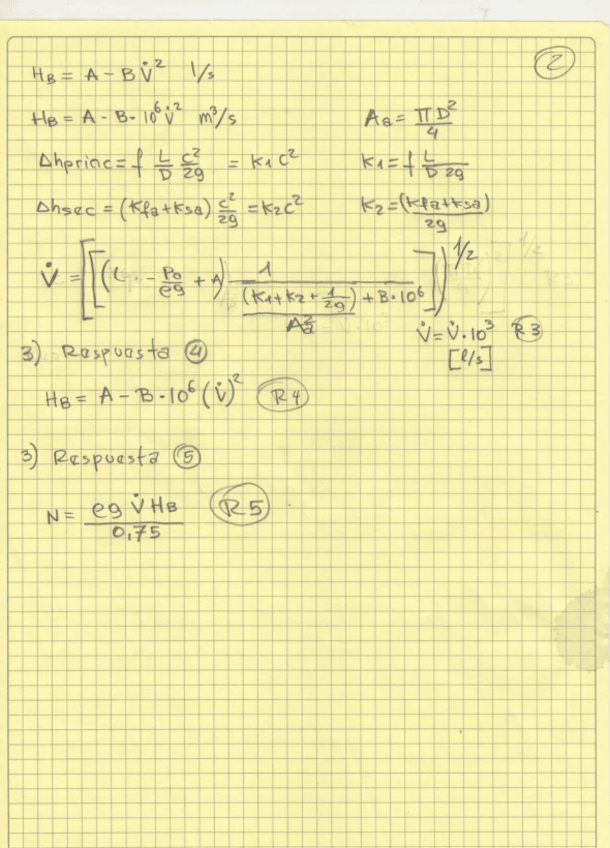 2
H_B = A - B V̇² l/s
H_B = A - B · 10⁶ V̇² m³/s
A_a = πD²/4
Δhprinc = f L/D c²/2g = K₁c²
K₁ = f L/D 2g
Δhsec = (Kfa + Ksa) c²/2g = K₂c²
K₂ = (Kfa + Ksa)/2g
V̇ = [[(L - Po/ρg + A) 1/((K₁ + K₂ + 1/2g)/A_a² + B · 10⁶)]]^1/2
V̇ = V̇ · 10³ R3
[l/s]
3) Respuesta 4
H_B = A - B · 10⁶ (V̇)² R4
3) Respuesta 5
N = ρg V̇ H_B / 0,75 R5